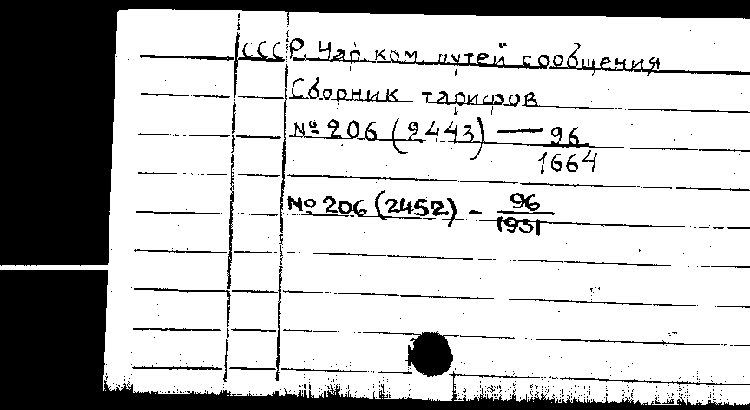 СССР. Нар. ком. путей сообщения
Сборник тарифов
№ 206 (2443) — 96/1664
№ 206 (2452) - 96/1931